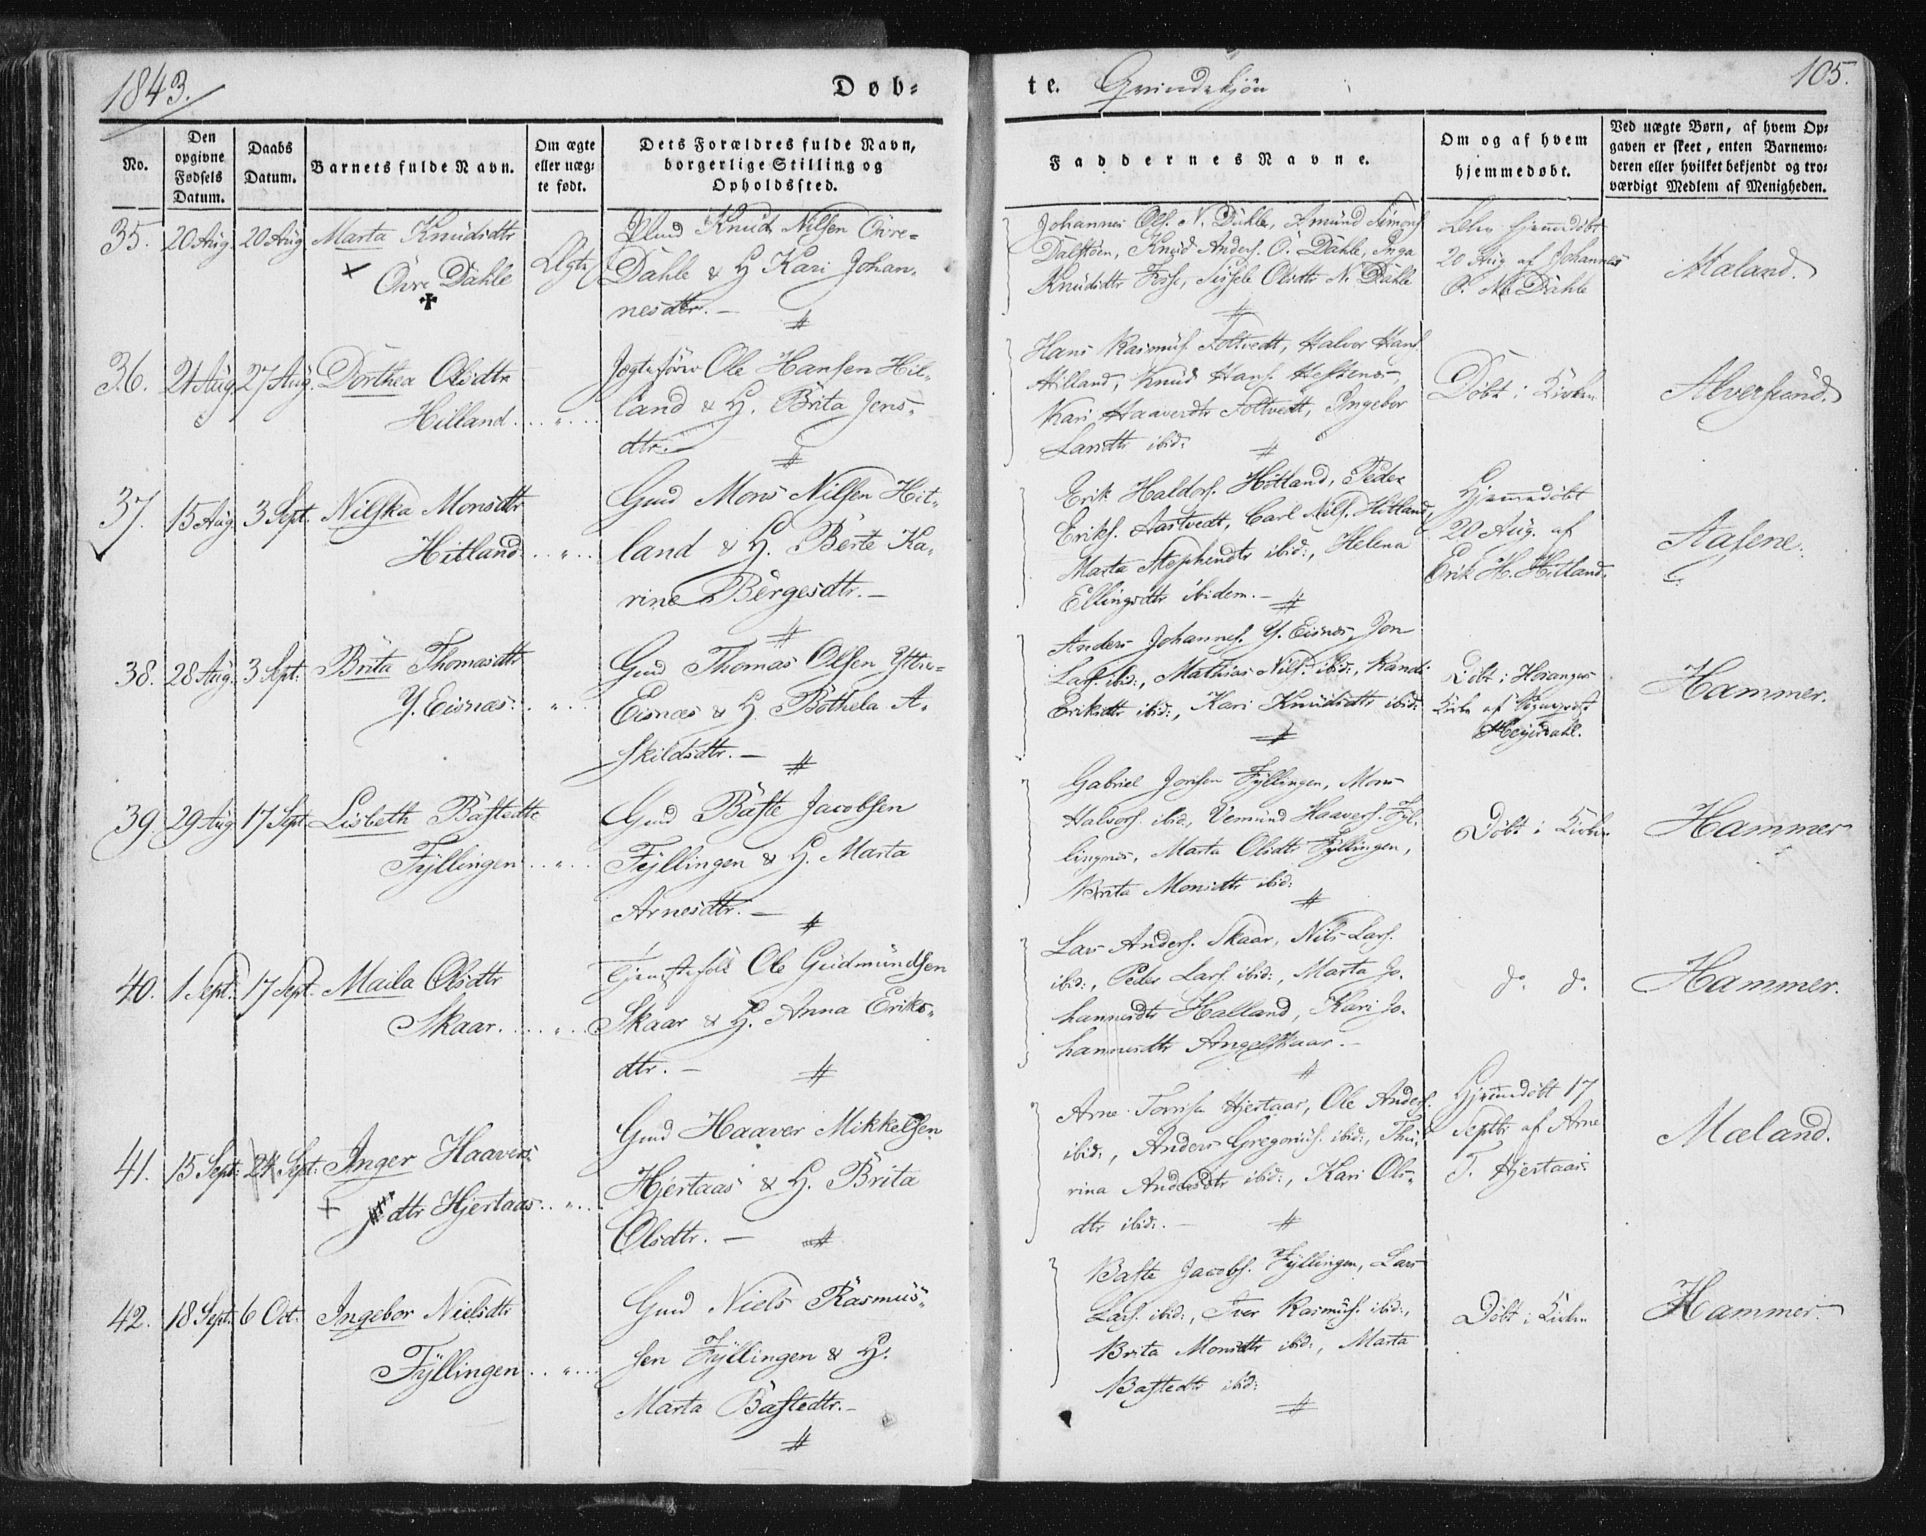 1843.
Døb-
te. Qvindekjön
105.
No.
Den opgivne Fødsels Datum.
Daabs Datum.
Barnets fulde Navn.
Om ægte eller uæg-
te født.
Dets Forældres fulde Navn,
borgerlige Stilling og
Opholdssted.
Faddernes Navne.
Om og af hvem
hjemmedøbt.
Ved uægte Børn, af hvem Op-
gaven er skeet, enten Barnemo-
deren eller hvilket bekjendt og tro-
værdigt Medlem af Menigheden.
35. 20 Aug. 20 Aug Marta Knudsdtr
Övre Dahle
Ægte
Knud Nilsen Övre-
Dahle & H. Kari Johan-
nesdtr. —
Johannes Ols. N. Dahle, Amund Simons.
Dalstöen, Knud Anders. Ö. Dahle, Inga
Knudsdtr Fesse, Sissele Olsdtr N. Dahle
hjemmedöbt
20 Aug af Johannes
O. N. Dahle
Mæland.
36. 21 Aug 27 Aug. Dorthea Olsdtr
Hilland
Jægtefører Ole Hansen Hil-
land & H. Brita Jens-
dtr.
Hans Rasmus. Toftvedt, Halvor Hans.
Hilland, Knud Hans. Hestenes,
Kari Haaversdtr Toftvedt, Ingebor
Larsdtr ibid:
Döbt i Kirken
Alversund.
37. 15 Aug. 3 Sept. Nilska Monsdtr
Hitland
Gmd Mons Nilsen Hit-
land & H. Berte Ka-
rine Börgesdtr. —
Erik Haldors. Hitland, Peder
Eriks. Aastvedt, Carl Nils. Hitland,
Marta Stephensdtr ibid:, Helena
Ellingsdtr ibidem. —
Hjemmedöbt
20 Aug. af
Erik H. Hitland.
Aasene.
38. 28 Aug. 3 Sept. Brita Thomasdtr
Y. Eisnæs.
Gmd Thomas Olsen Yttre-
Eisnæs & H. Böthela A-
skildsdtr. —
Anders Johannes. Y. Eisnes, Jon
Lars. ibid:, Mathias Nils. ibid:, Randi
Eriksdtr ibid:, Kari Knudsdtr ibid:
Döbt i Hosanger
Kirke af Sognepræst
Heyerdahl.
Hammer.
39. 29 Aug 17 Sept. Lisbeth Bastedtr
Fyllingen
Gmd Baste Jacobsen
Fyllingen & H. Marta
Arnesdtr. —
Gabriel Jonsen Fyllingen, Mons
Halvors. ibid, Vemund Haavers. Fyl-
lingnes, Marta Olsdtr Fyllingen,
Brita Monsdtr ibid:
Döbt i Kirken
Hammer
40. 1 Sept: 17 Sept. Marta Olsdtr
Skaar.
Tjenestefolk Ole Gudmundsen
Skaar & H. Anna Eriks-
dtr. —
Lars Anders. Skaar, Nils Lars.
ibid:, Peder Lars. ibid:, Marta Jo-
hannesdtr Halland, Kari Jo-
hannesdtr Angelskaar. —
do do
Hammer.
41. 15 Sept: 24 Sept. Inger Haavers-
dtr Hjertaas
Gmd Haaver Mikkelsen
Hjertaas & H. Brita
Olsdtr. —
Arne Hjertaas, Ole Anders.
ibid:, Anders Gregorius. ibid:, Thu-
rina Andersdtr ibid:, Kari Ols-
dtr ibid:. —
Hjemmedöbt 17
Septbr af Arne
T. Hjertaas
Mæland.
42. 18 Sept. 6 Oct. Ingebor Nielsdtr
Fyllingen
Gmd Niels Rasmus-
sen Fyllingen & H.
Marta Bastedtr. —
Baste Jacobs. Fyllingen, Lars
Lars. ibid:, Iver Rasmus. ibid:,
Brita Monsdtr ibid:, Marta
Bastedtr ibid:
Döbt i Kirken
Hammer.